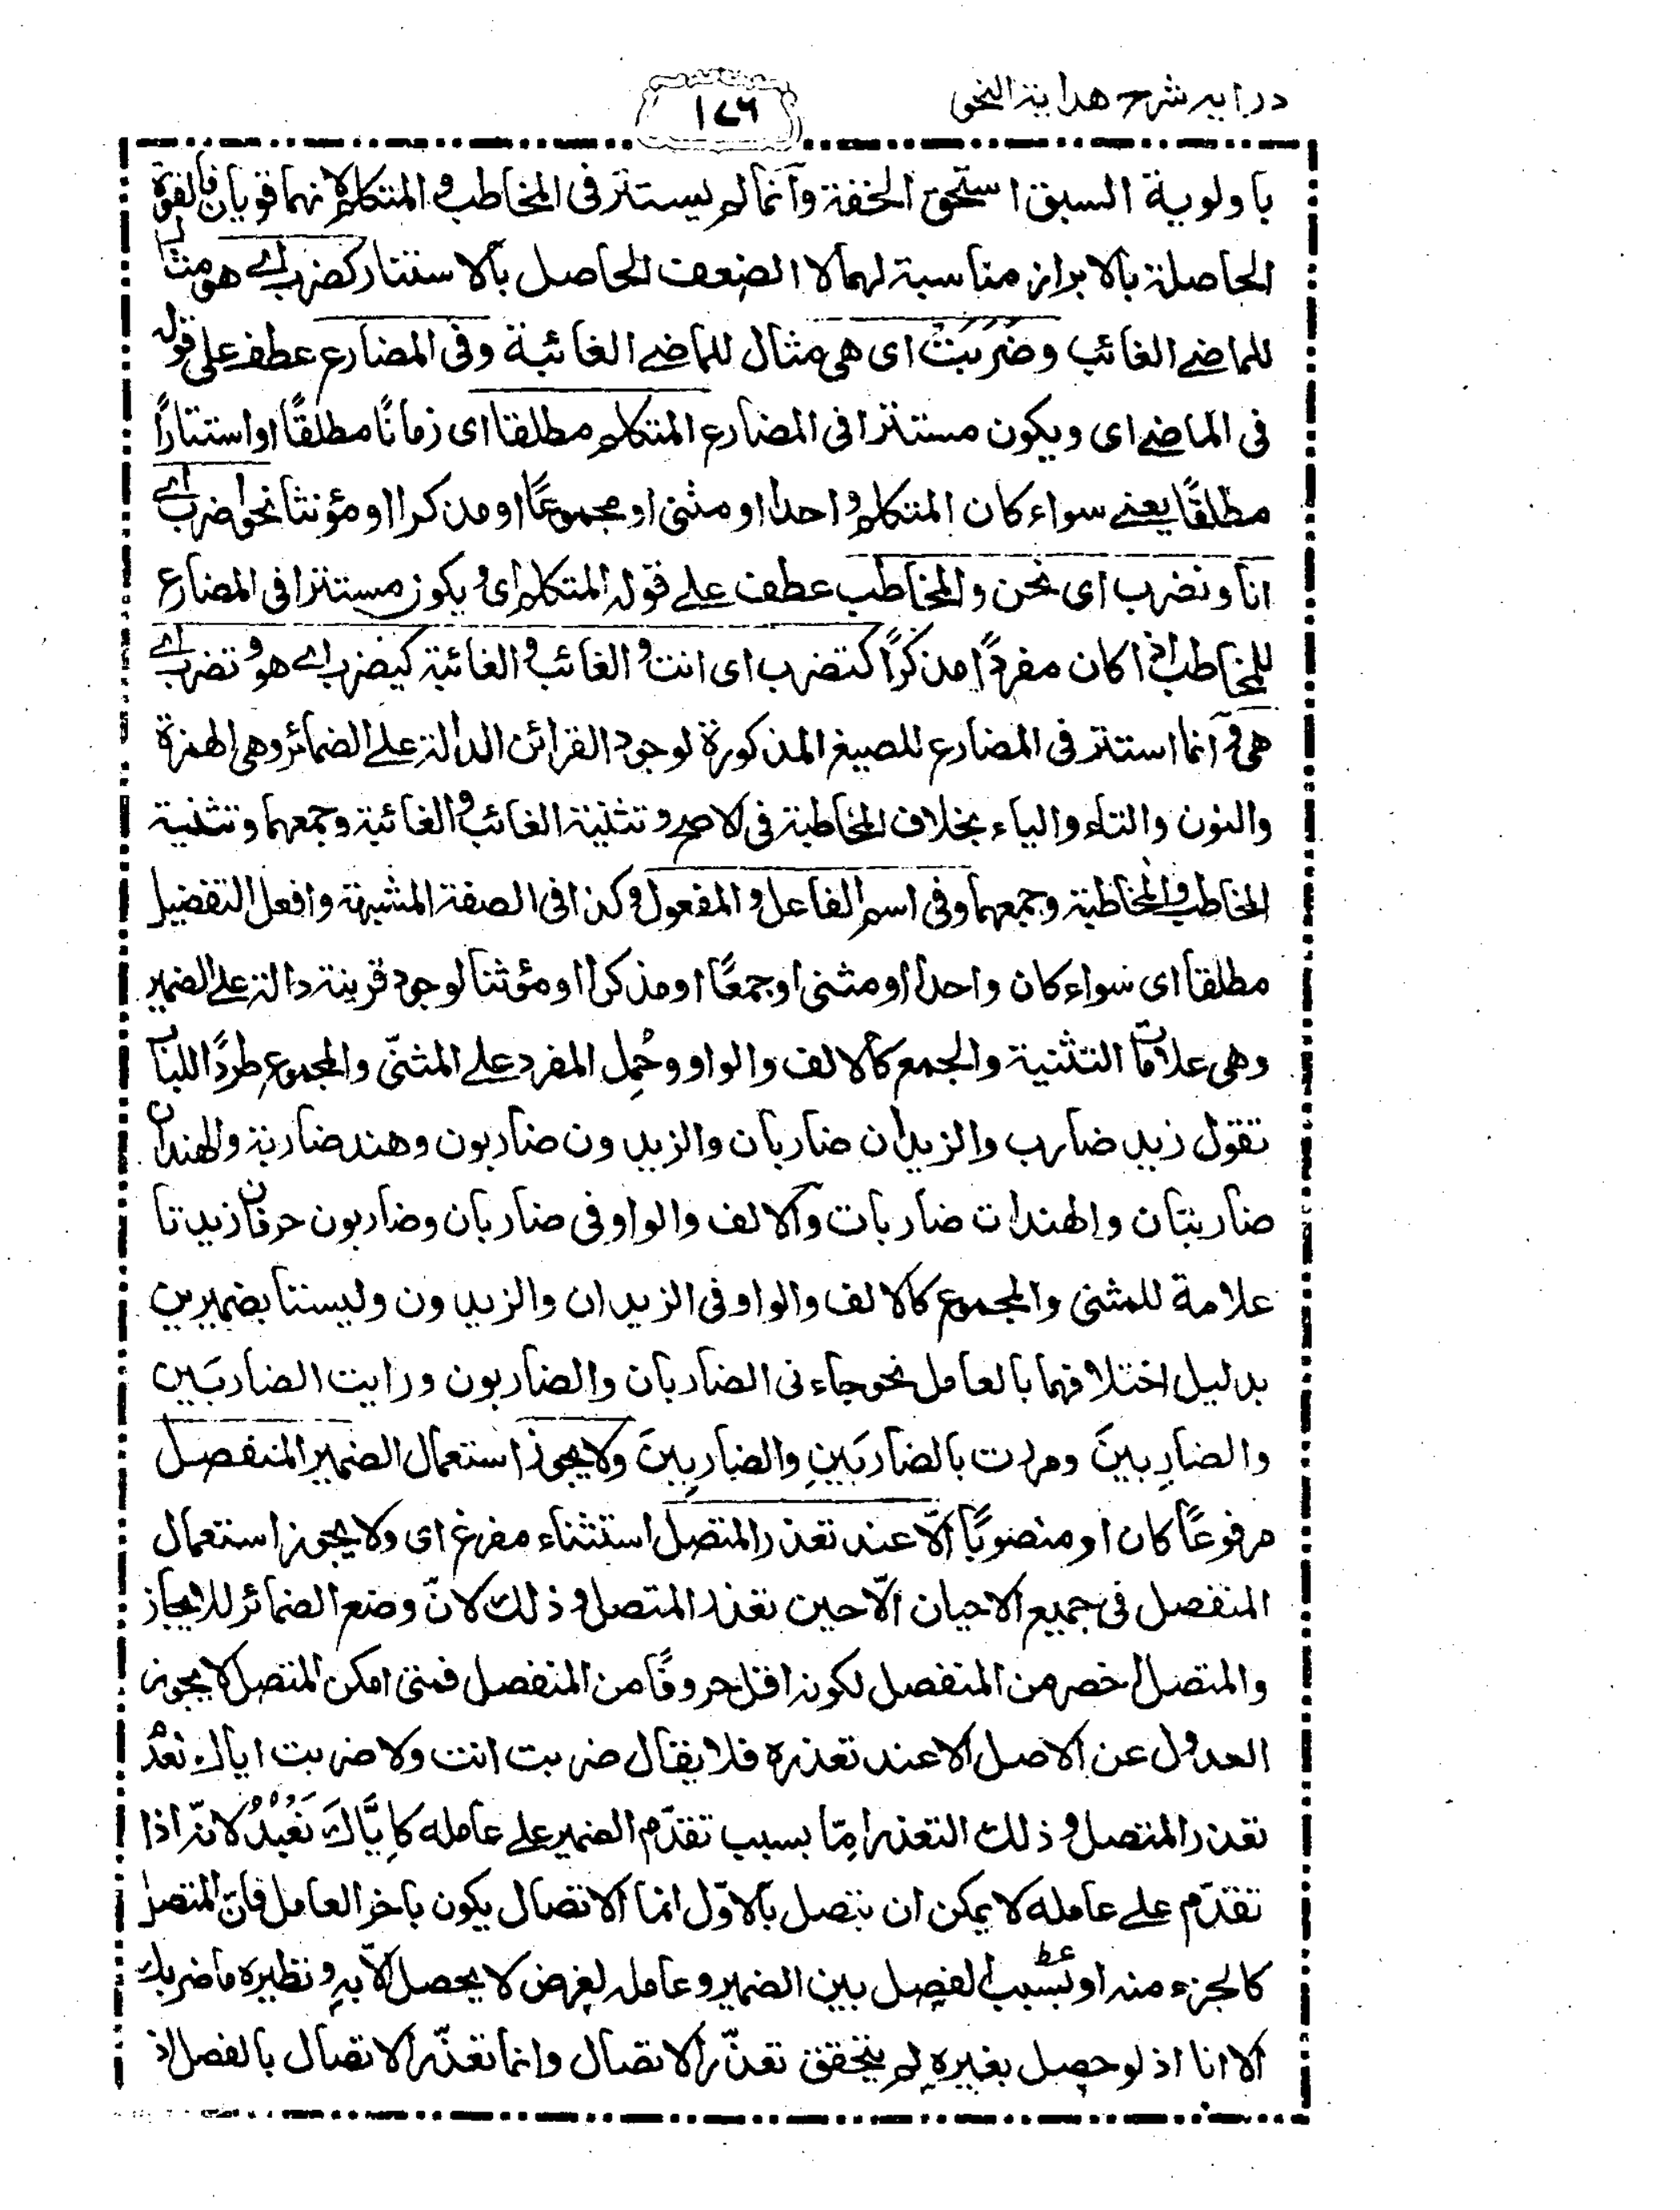 درايه شرح هداية النحو
١٧٦
باولوية السبق استحق الخفة وانما لم يستتر فى المخاطب والمتكلم لانهما قويان فالقوة
الحاصلة بالابراز مناسبة لهما لا الضعف الحاصل بالاستتار كضرب اے هو مثال
للماضے الغائب وضَرَبَتْ اى هى مثال للماضے الغائبة وفى المضارع عطف على قوله
فى الماضے اى ويكون مستترا فى المضارع المتكلم مطلقا اى زمانًا مطلقًا او استتارًا
مطلقًا يعنے سواء كان المتكلم واحدا او مثنى او مجموعًا او مذكرا او مؤنثا نحو اضرب اے
انا ونضرب اى نحن والمخاطب عطف علے قوله المتكلم اى ويكون مستترا فى المضارع
للمخاطب اذا كان مفردًا مذكرًا كتضرب اى انت والغائب والغائبة كيضرب اے هو وتضرب اے
هى وانما استتر فى المضارع للصيغ المذكورة لوجود القرائن الدالة علے الضمائر وهى الهمزة
والنون والتاء والياء بخلاف المخاطبة فى الاصح وتثنية الغائب والغائبة وجمعهما وتثنية
المخاطب والمخاطبة وجمعهما وفى اسم الفاعل والمفعول وكذا فى الصفة المشبهة وافعل التفضيل
مطلقا اى سواء كان واحدا او مثنى او جمعًا او مذكرا او مؤنثا لوجود قرينة دالة علے الضمير
وهى علامات التثنية والجمع كالالف والواو وحُمِل المفرد علے المثنّى والمجموع طردًا للباب
تقول زيد ضارب والزيدان ضاربان والزيدون ضاربون وهند ضاربة والهندان
ضاربتان والهندات ضاربات والالف والواو فى ضاربان وضاربون حرفان زيدتا
علامة للمثنى والمجموع كالالف والواو فى الزيدان والزيدون وليستا بضميرين
بدليل اختلافهما بالعامل نحو جاءنى الضاربان والضاربون ورايت الضاربَين
والضارِبينَ ومررت بالضاربَينِ والضاربِينَ ولا يجوز استعمال الضمير المنفصل
مرفوعًا كان او منصوبًا الّا عند تعذر المتصل استثناء مفرغ اى ولا يجوز استعمال
المنفصل فى جميع الاحيان الّا حين تعذر المتصل وذلك لانّ وضع الضمائر للايجاز
والمتصل اخصر من المنفصل لكونه اقل حروفًا من المنفصل فمتى امكن المتصل لا يجوز
العدول عن الاصل الا عند تعذره فلا يقال ضربت انت ولا ضربت اياك لعدم
تعذر المتصل وذلك التعذر امّا بسبب تقدّم الضمير علے عامله كاِيَّاكَ نَعْبُدُ لانّه اذا
تقدّم علے عامله لا يمكن ان يتصل بالاوّل انما الاتصال يكون باخر العامل فانّ المتصل
كالجزء منه او بسبب الفصل بين الضمير وعامله لغرض لا يحصل الّا به ونظيره ما ضربك
الا انا اذ لو حصل بغيره لم يتحقق تعذّر الاتصال وانما تعذّر الاتصال بالفصل اذ